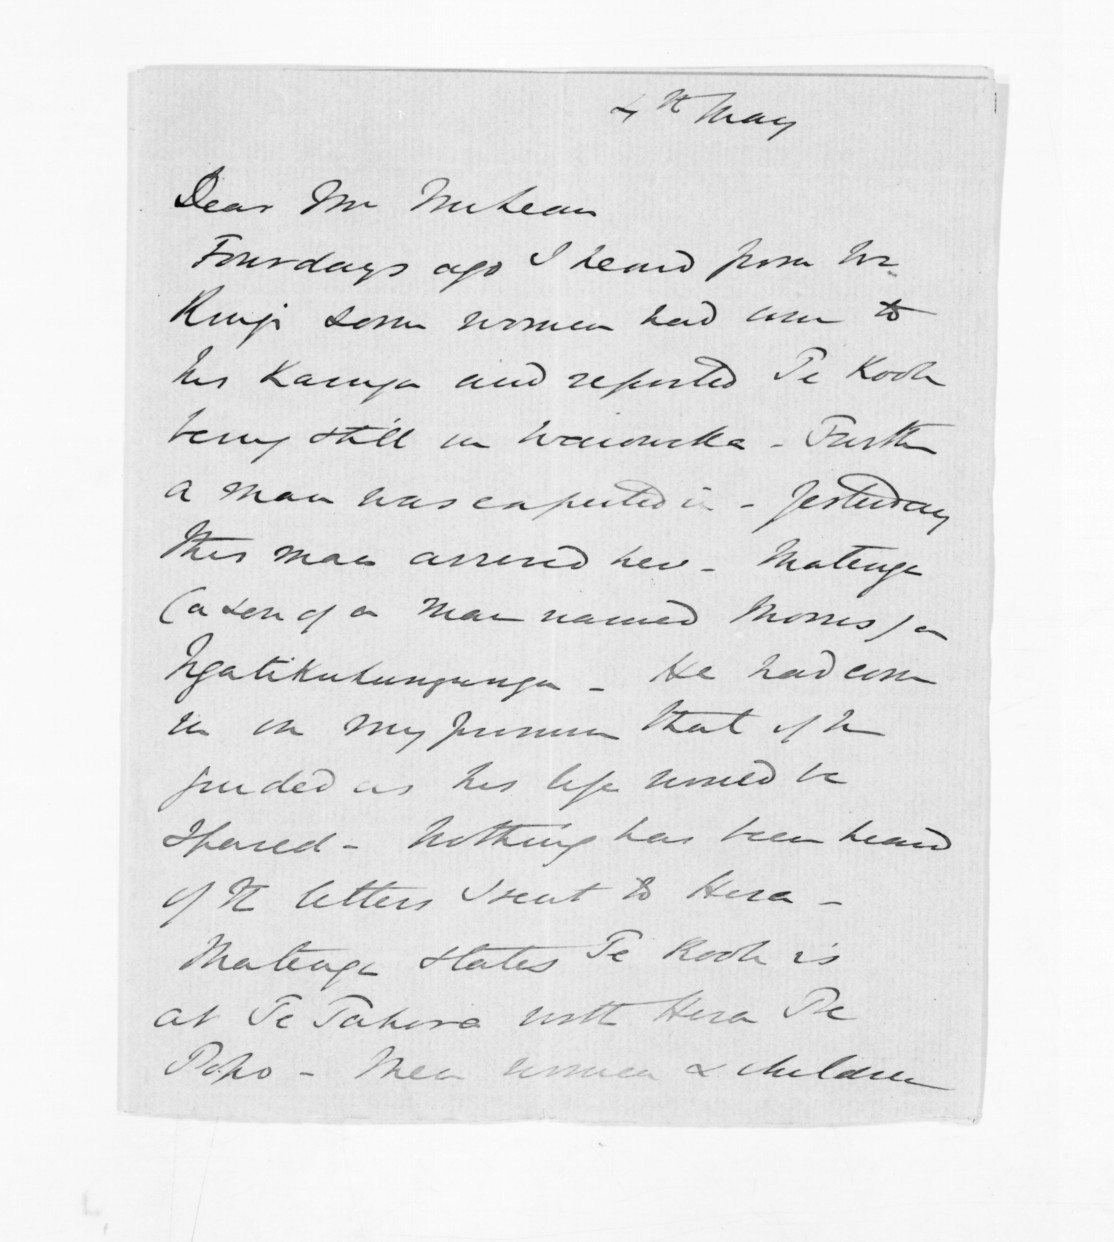 4th May
Dear Mr McLean
Four days ago I heard from Wi
Kingi some women had come to
his Kainga and reported Te Kooti
being still in Waioweka - Further
a man was expected in - Yesterday
this man arrived here - Matenga
(a son of a man named Morris) a
Ngatikahungunga - He had come
in on my promise that if he
guided us his life would be
spared - Nothing has been heard
of the letters I sent to Hira -
Matenga states Te Kooti is
at Te Tahora with Hira Te
Popo - Men women & children